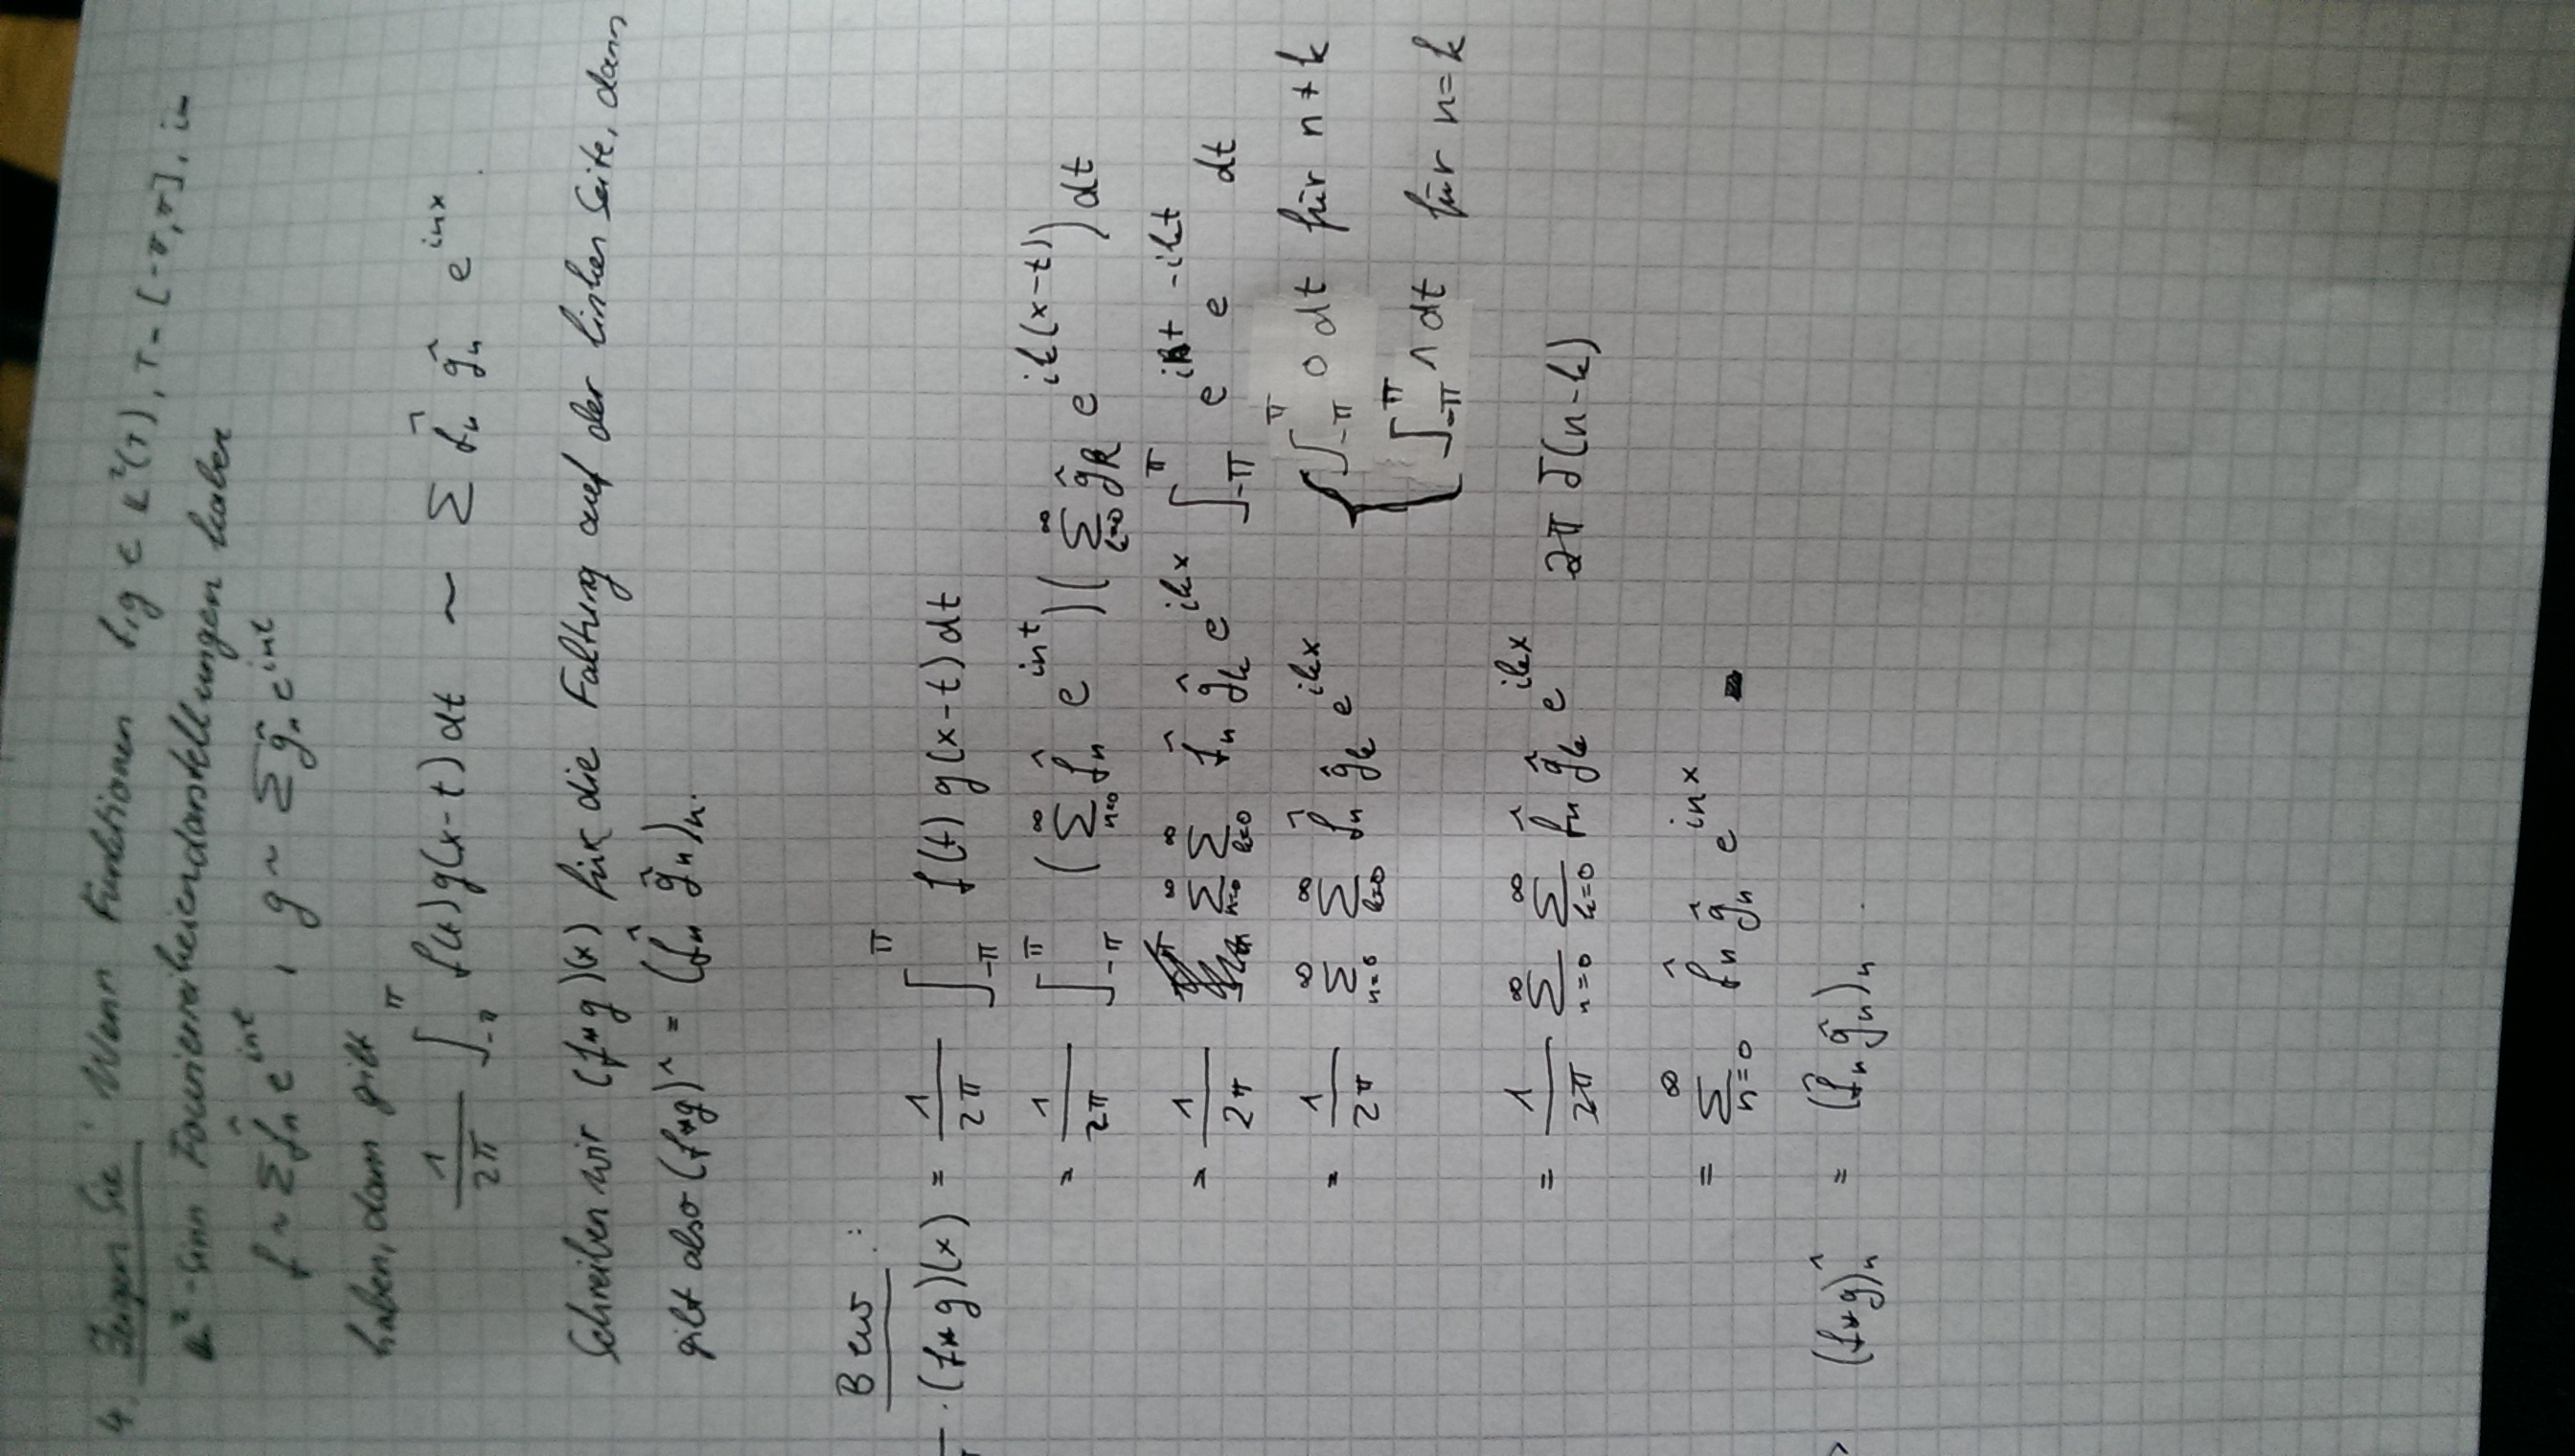 4. Zeigen Sie: Wenn Funktionen f, g ∈ L²(T), T = [-π, π], in
L²-Sinn Fourierreihendarstellungen haben
f ~ Σ f̂ₙ e^{int} , g ~ Σ ĝₙ e^{int}
haben, dann gilt
1/2π ∫_{-π}^{π} f(t) g(x-t) dt ~ Σ f̂ₙ ĝₙ e^{inx}.
Schreiben wir (f*g)(x) für die Faltung auf der linken Seite, dann
gilt also (f*g)^ = (f̂ₙ ĝₙ)ₙ.
Bew.:
(f*g)(x) = 1/2π ∫_{-π}^{π} f(t) g(x-t) dt
= 1/2π ∫_{-π}^{π} (Σ_{n=0}^{∞} f̂ₙ e^{int}) (Σ_{k=0}^{∞} ĝₖ e^{ik(x-t)}) dt
= 1/2π Σ_{n=0}^{∞} Σ_{k=0}^{∞} f̂ₙ ĝₖ e^{ikx} ∫_{-π}^{π} e^{int} e^{-ikt} dt
= 1/2π Σ_{n=0}^{∞} Σ_{k=0}^{∞} f̂ₙ ĝₖ e^{ikx} { ∫_{-π}^{π} 0 dt für n ≠ k
∫_{-π}^{π} 1 dt für n = k
= 1/2π Σ_{n=0}^{∞} Σ_{k=0}^{∞} f̂ₙ ĝₖ e^{ikx} 2π δ(n-k)
= Σ_{n=0}^{∞} f̂ₙ ĝₙ e^{inx}
(f*g)^ₙ = (f̂ₙ ĝₙ)ₙ